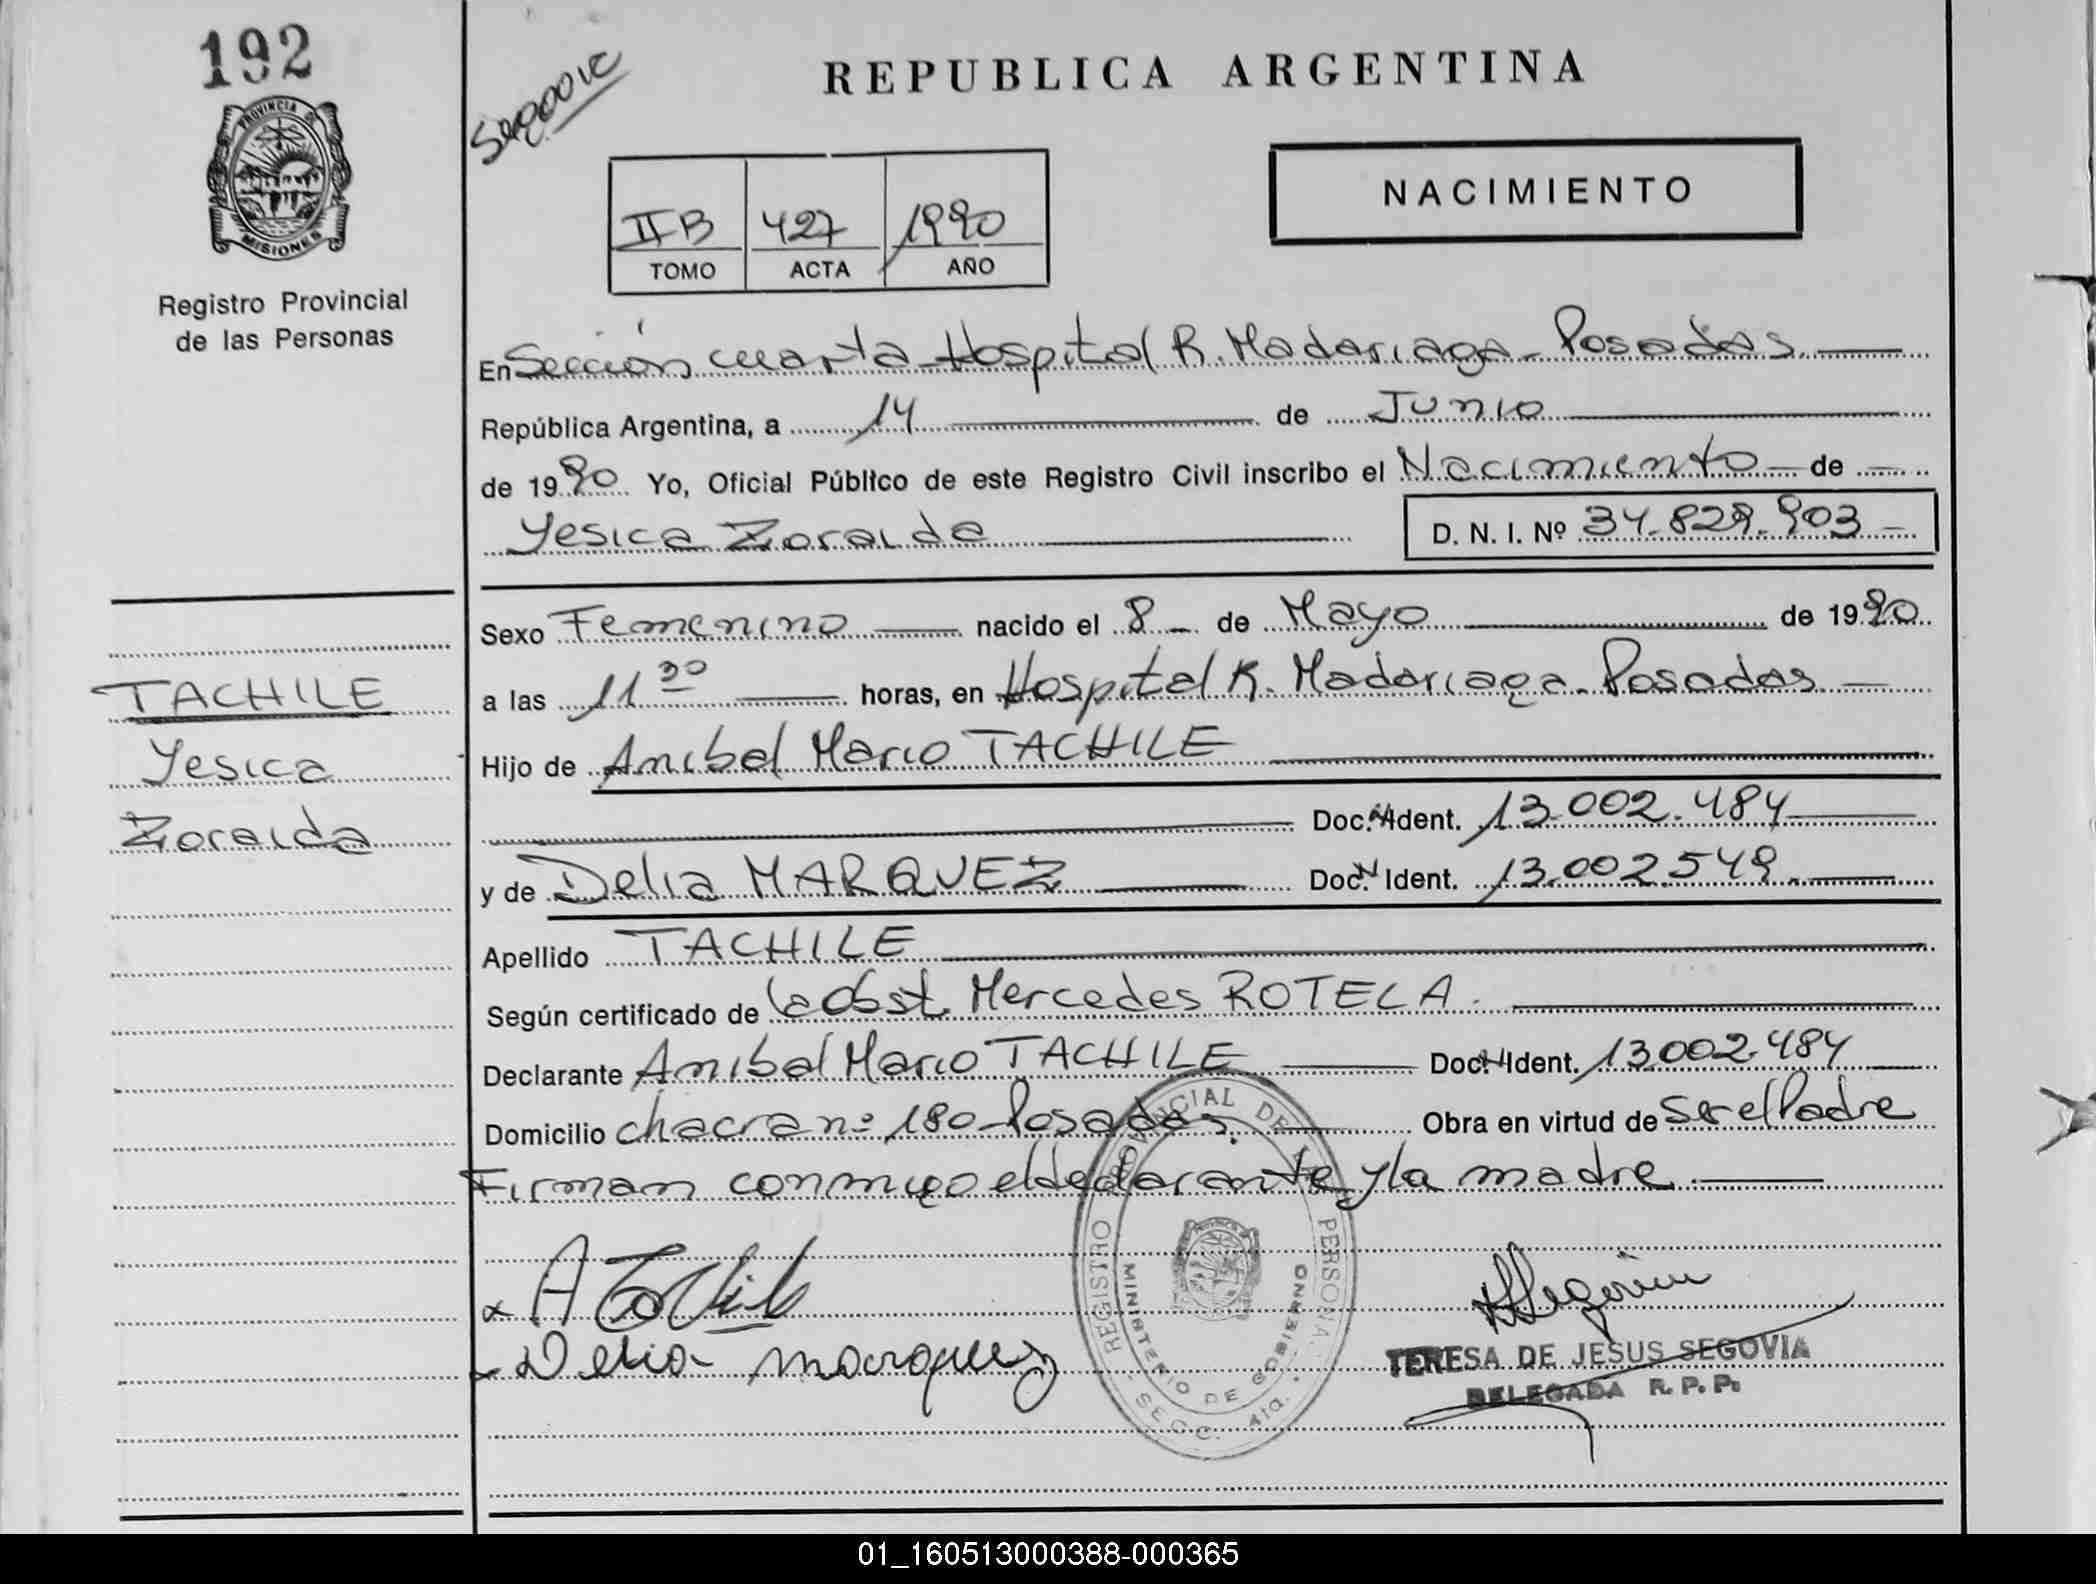 192
PROVINCIA DE
MISIONES
Registro Provincial
de las Personas
REPUBLICA ARGENTINA
NACIMIENTO
IIB 427 1990
TOMO ACTA AÑO
En Sección cuarta Hospital R. Madariaga - Posadas
República Argentina, a 14 de Junio
de 1990 Yo, Oficial Público de este Registro Civil inscribo el Nacimiento de
Yesica Zoraida D. N. I. Nº 34.829.903
Sexo Femenino nacido el 8 de Mayo de 1990
a las 11 30 horas, en Hospital R. Madariaga - Posadas
Hijo de Anibal Mario TACHILE
Doc. N Ident. 13.002.484
y de Delia MARQUEZ Doc. N Ident. 13.002.549
Apellido TACHILE
Según certificado de la Obst. Mercedes ROTELA.
Declarante Anibal Mario TACHILE Doc. N Ident. 13.002.484
Domicilio chacra nº 180 - Posadas. Obra en virtud de ser el Padre
Firman conmigo el declarante y la madre
TACHILE
Yesica
Zoraida
A Tachile
Delia marquez
REGISTRO PROVINCIAL DE LAS PERSONAS
MINISTERIO DE GOBIERNO
SECC. 4ta.
TERESA DE JESUS SEGOVIA
DELEGADA R. P. P.
01_160513000388-000365